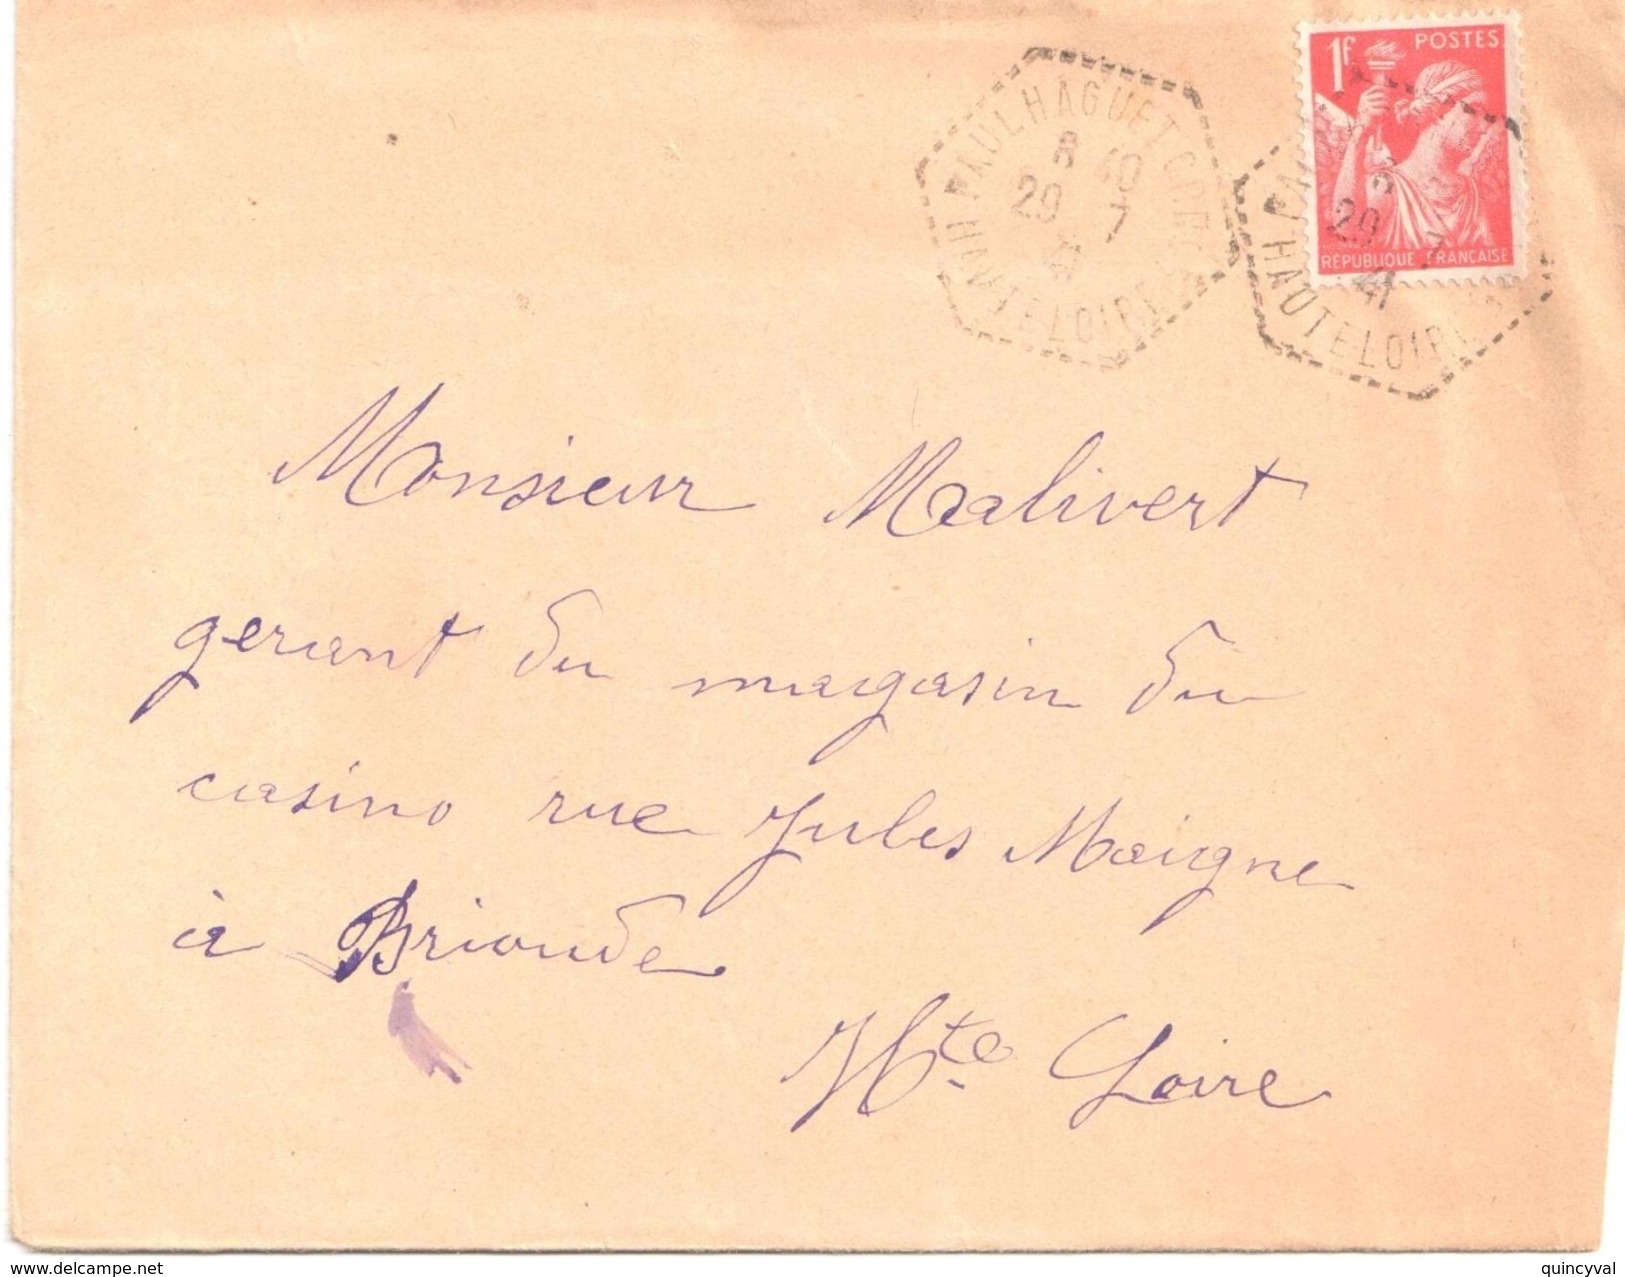 1F POSTES
RÉPUBLIQUE FRANCAISE
PAULHAGUET
8 40
29 7
41
HAUTE LOIRE
29 7
41
HAUTE LOIRE
Monsieur Malivert
gerant du magasin du
casino rue Jules Maigne
à Brioude
Hte Loire
delcampe.net
quincyval